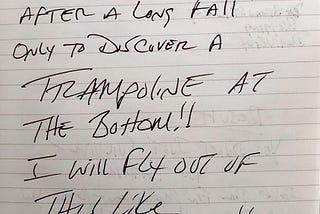 AFTER A LONG FALL
ONLY TO DISCOVER A
TRAMPOLINE AT
THE BOTTOM!!
I WILL FLY OUT OF
THIS LIKE